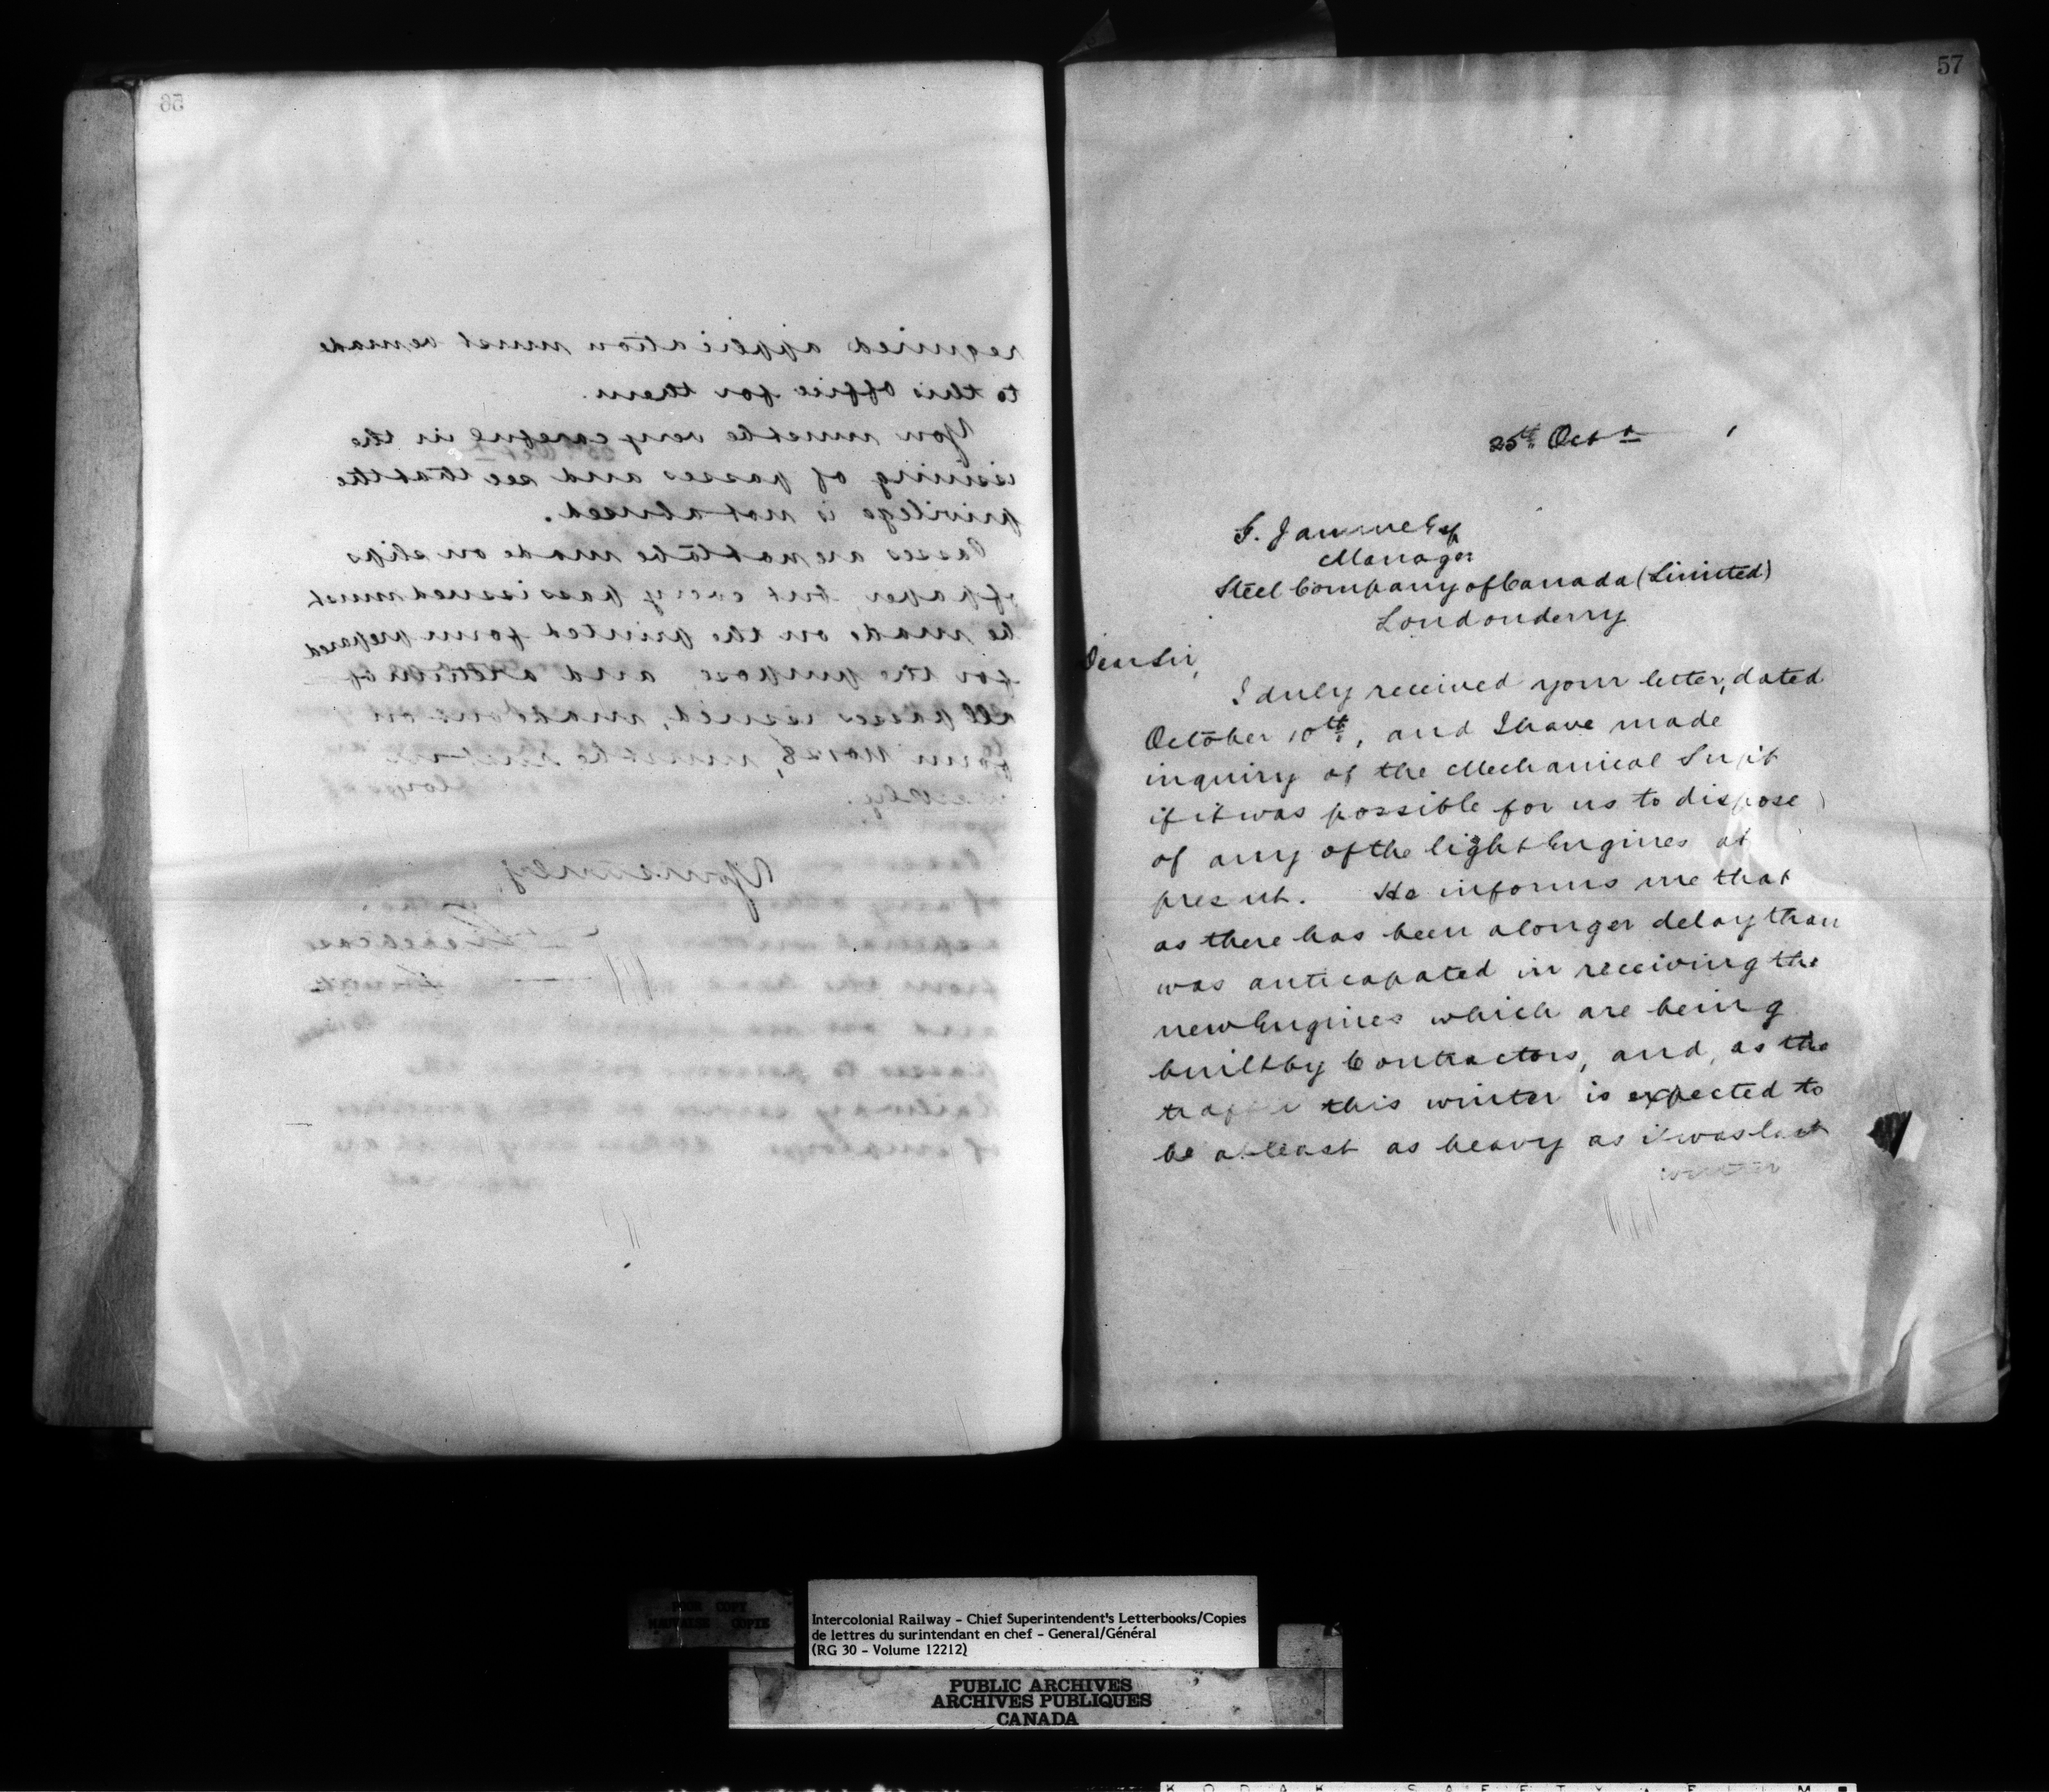 56
required application must be made
to this office for them.
You must be very careful in the
issuing of passes and see that the
privilege is not abused.
Passes are not to be made on slips
of paper, but every pass issued must
be made on the printed form prepared
for the purpose and a return of
all passes issued, made out on
form No 28, must be sent in
weekly.
Yours truly
57
25th Oct
F. Jamme Esq
Manager
Steel Company of Canada (Limited)
Londonderry
Dear Sir,
I duly received your letter, dated
October 10th, and I have made
inquiry of the Mechanical Supt
if it was possible for us to dispose
of any of the light Engines at
present. He informs me that
as there has been a longer delay than
was anticapated in receiving the
new Engines which are being
built by Contractors, and, as the
traffic this winter is expected to
be at least as heavy as it was last
winter
POOR COPY
MAUVAISE COPIE
Intercolonial Railway - Chief Superintendent's Letterbooks/Copies
de lettres du surintendant en chef - General/Général
(RG 30 - Volume 12212)
PUBLIC ARCHIVES
ARCHIVES PUBLIQUES
CANADA
KODAK SAFETY FILM